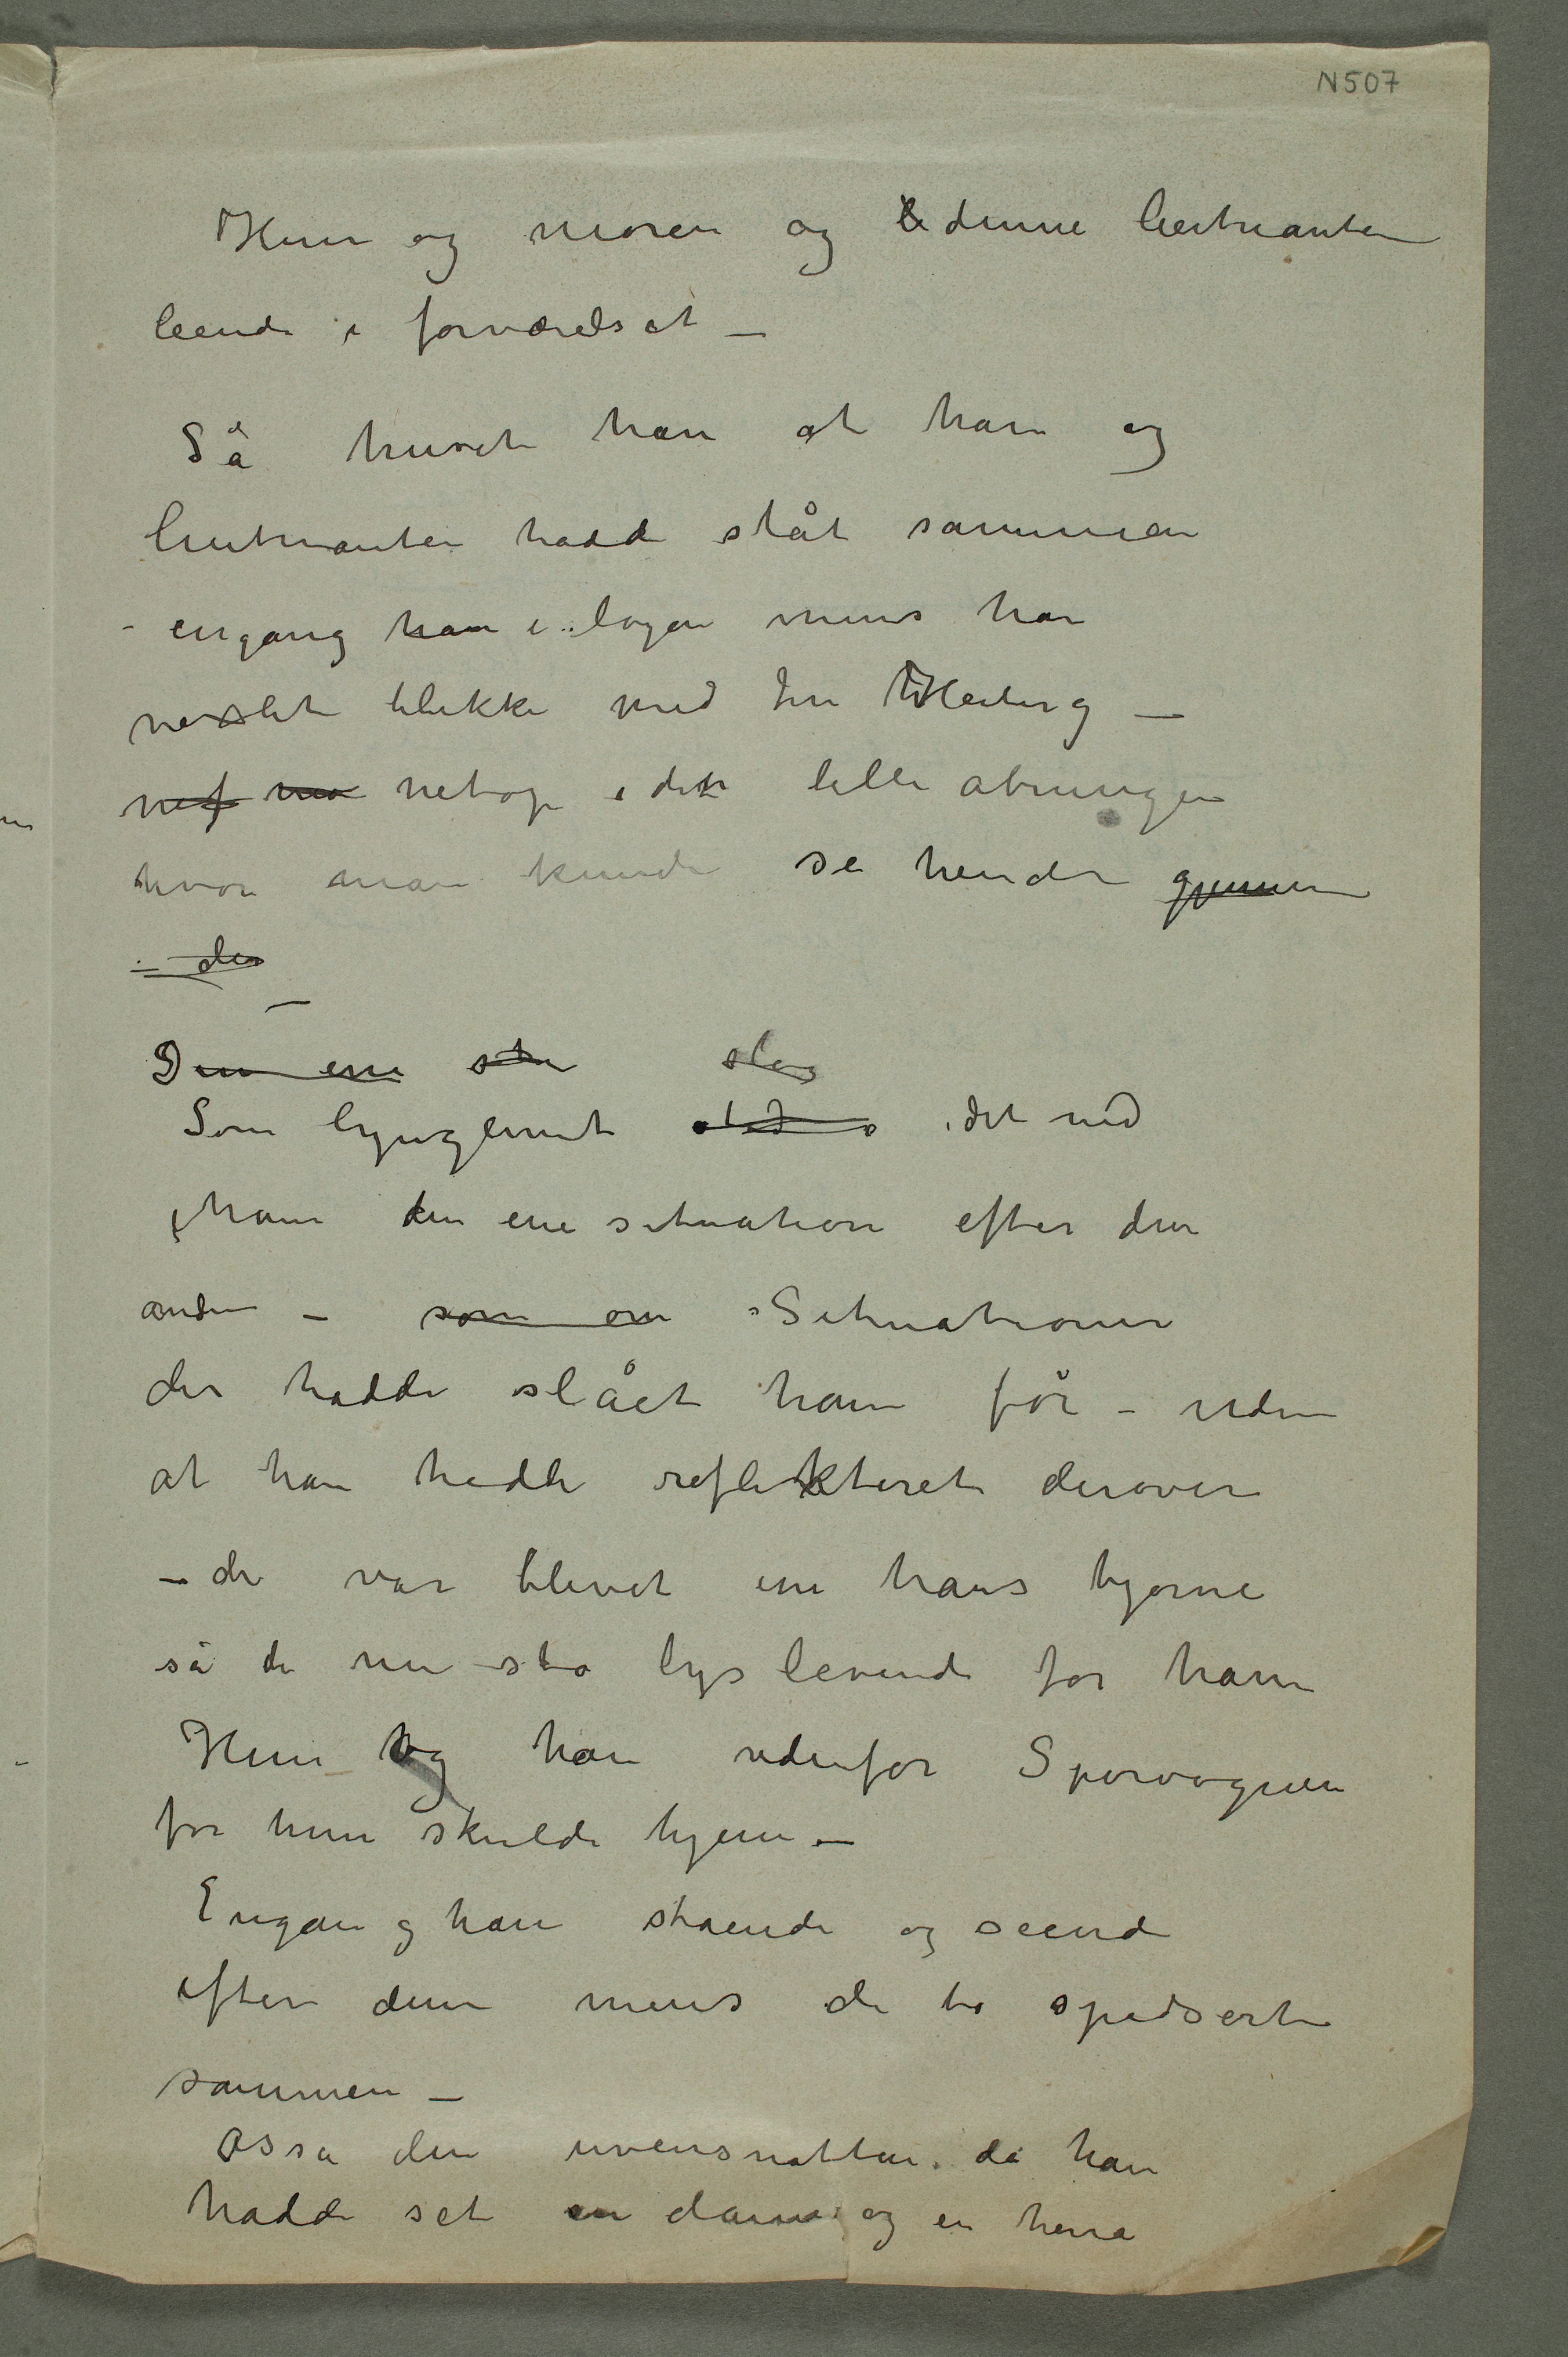 N507
Hun og moren og denne leitnanten
leende i forværelset –
Så huset han at han og
leutnanten hadde ståt sammen
– engang han i logen mens han
vexlet blikke med fru Heiberg –
netop i den lille åbningen
hvor man kunde se hende gjennem
– der
–
Den ene stu
slog
Som lynglimt stod det ned
i ham den ene situation efter den
anden – som om Situationer
der hadde slået ham før – uden
at han hadde reflekteret derover
– de var blevet in hans hjørne
så de nu sto lyslevende for ham
Hun og han udenfor Sporvognen
før hun skulde hjem –
Engang han stående og seende
efter dem mens de to spadserte
sammen –
Osså den uveirsnatten da han
hadde set en dame og en herre